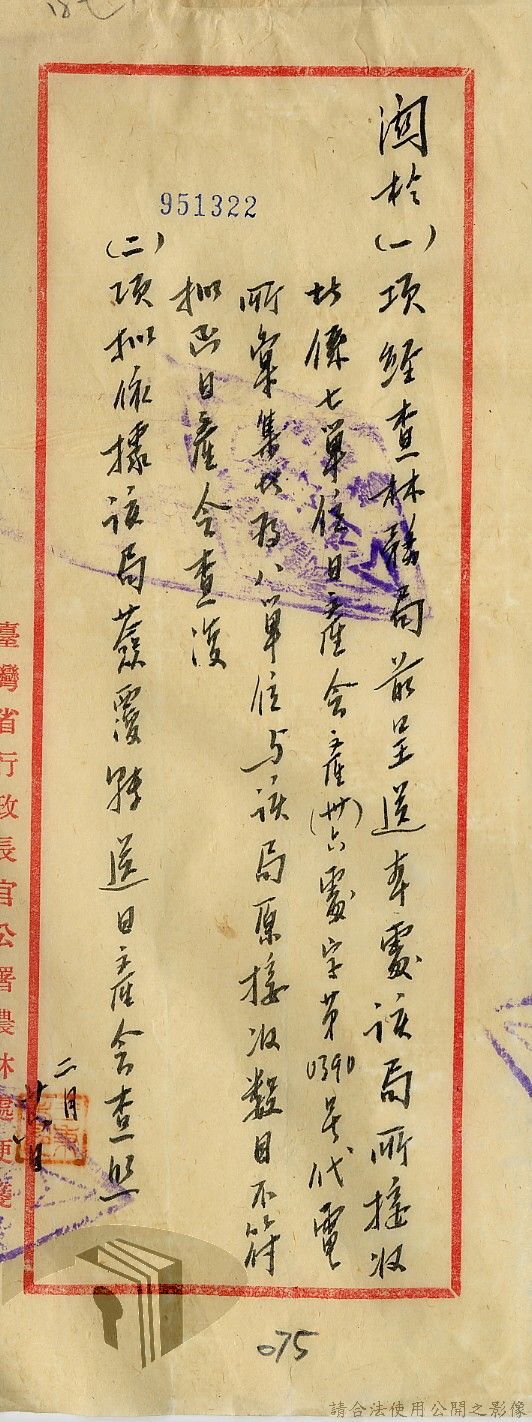 951322
關於(一)項經查林務局前呈送本處該局所接收
者係七單位日產會產(卅)六處字第0390號代電
所彙集者為八單位與該局原接收數目不符
擬函日產會查復
(二)項擬依據該局簽覆轉送日產會查照
二月
臺灣省行政長官公署農林處便箋
075
請合法使用公開之影像